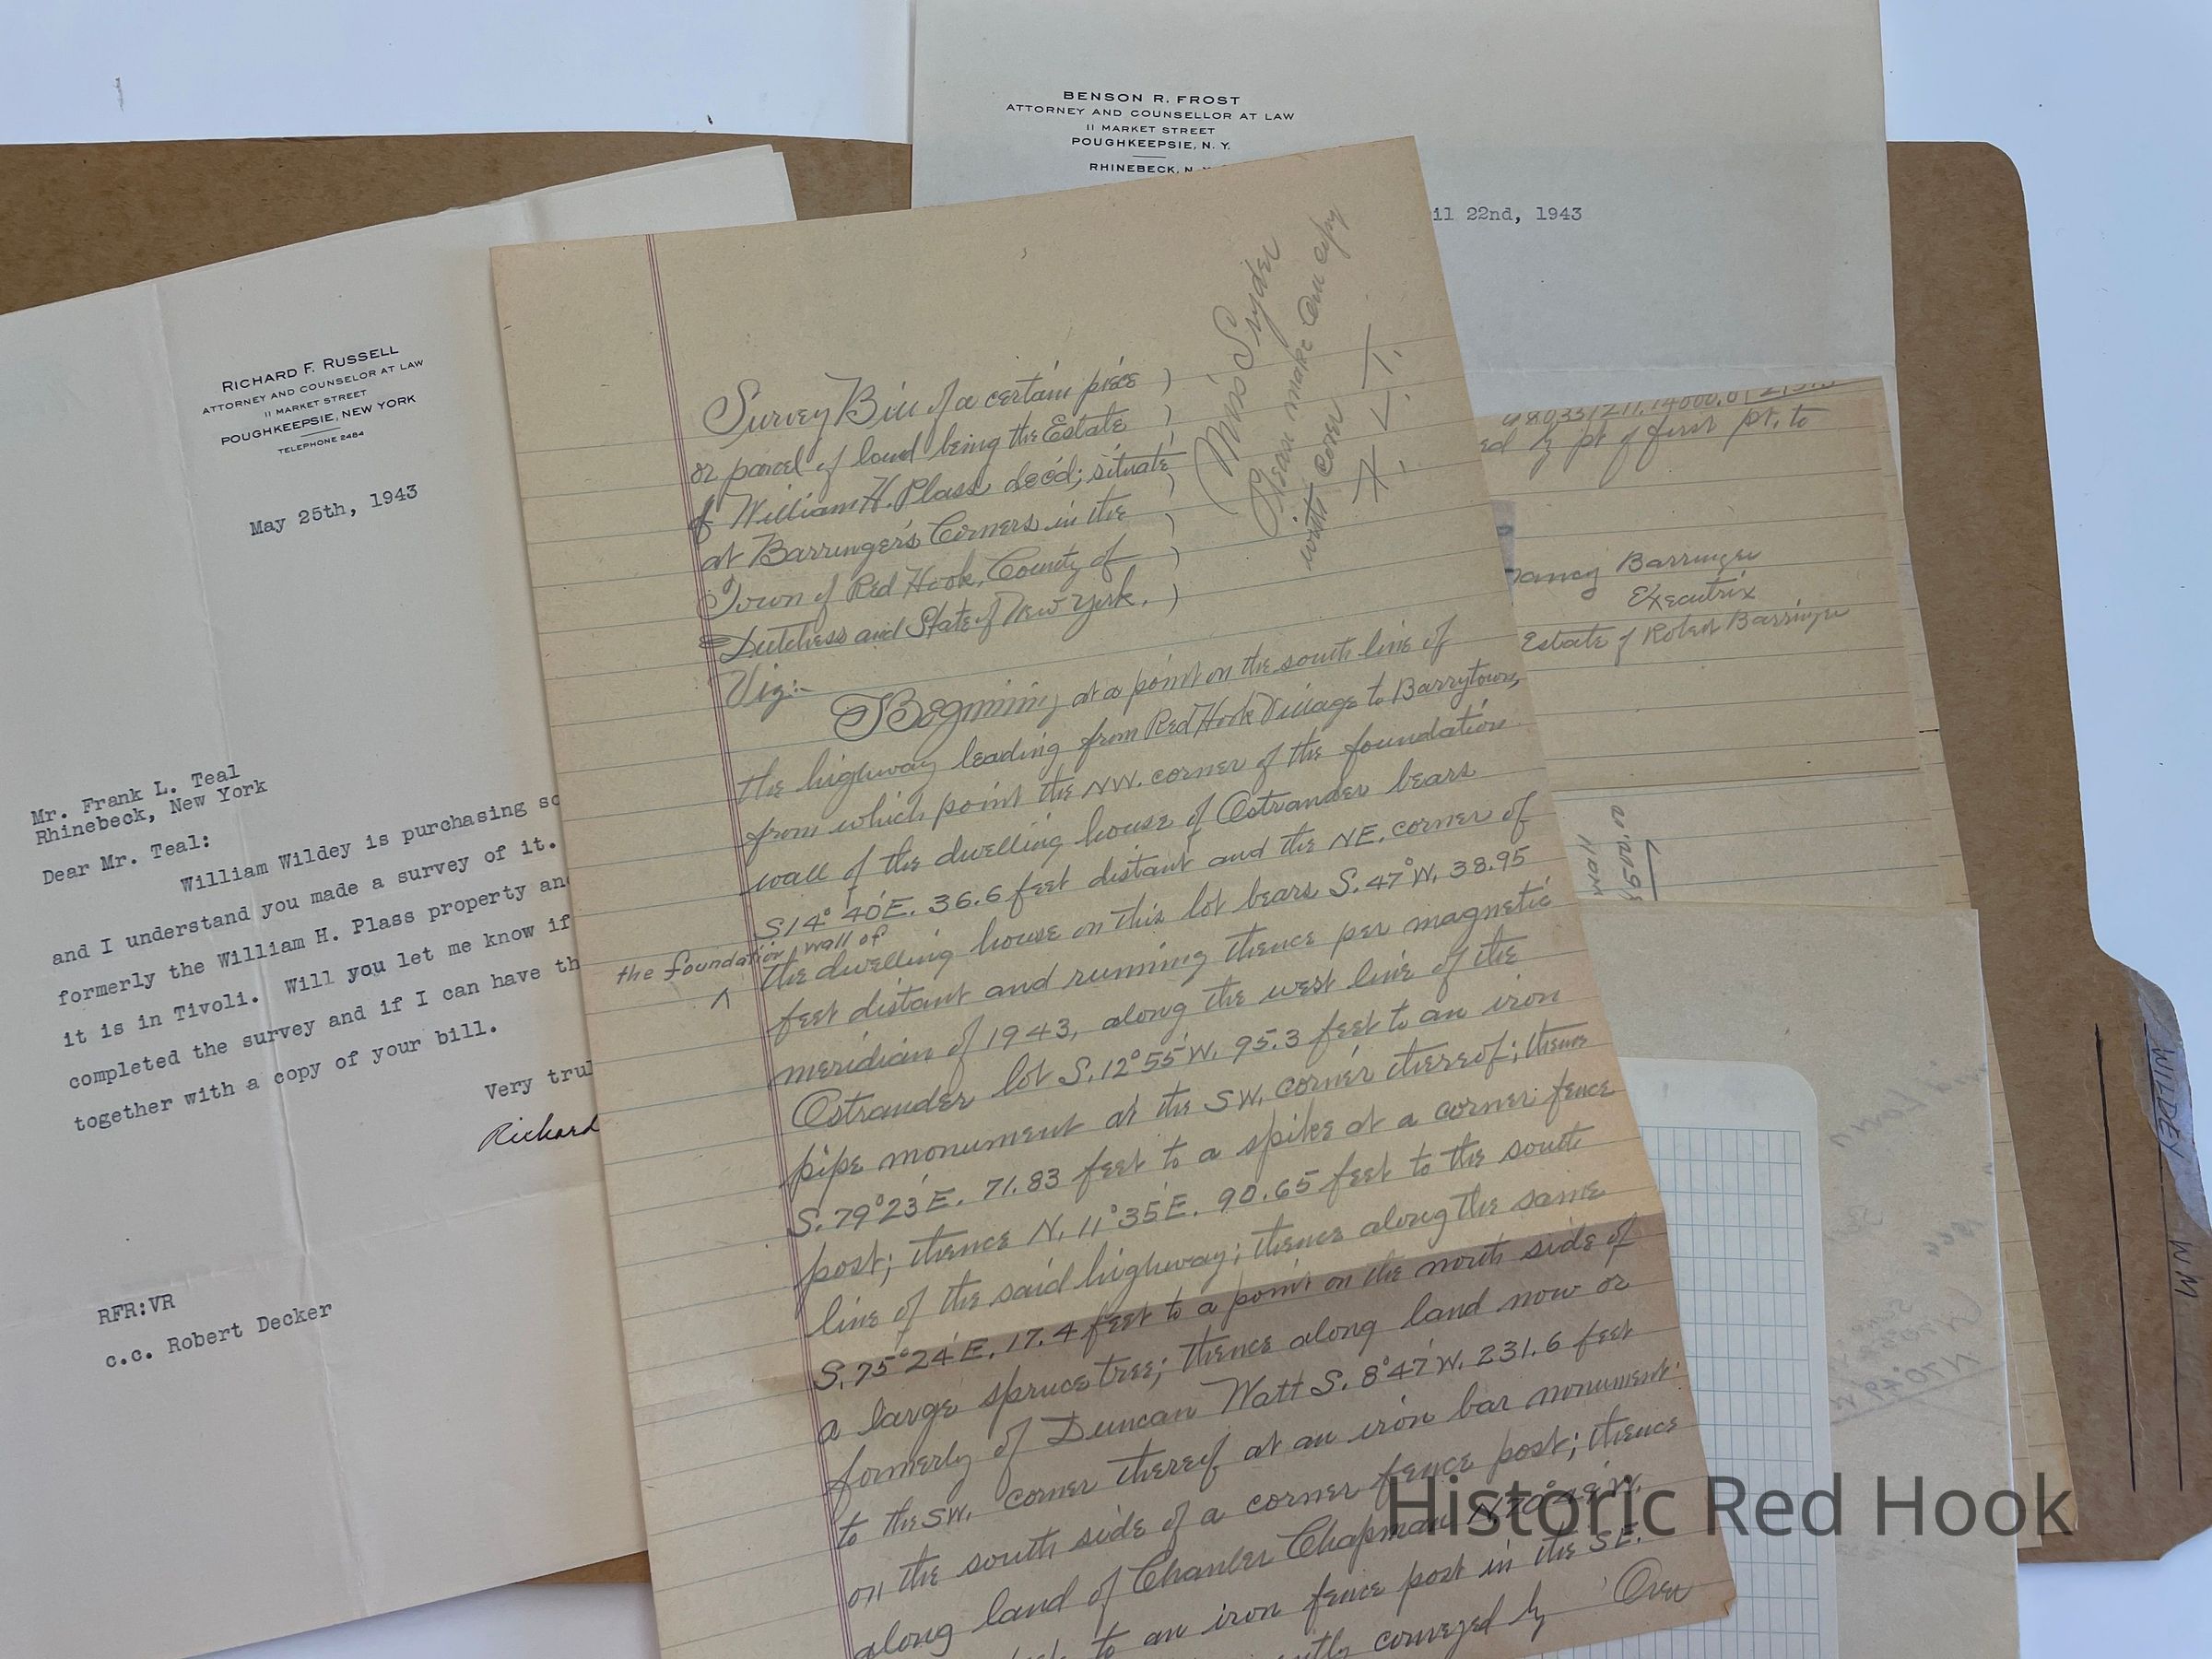 BENSON R. FROST
ATTORNEY AND COUNSELLOR AT LAW
11 MARKET STREET
POUGHKEEPSIE, N. Y.
RHINEBECK, N. Y.
il 22nd, 1943
RICHARD F. RUSSELL
ATTORNEY AND COUNSELOR AT LAW
11 MARKET STREET
POUGHKEEPSIE, NEW YORK
TELEPHONE 2484
May 25th, 1943
Mr. Frank L. Teal
Rhinebeck, New York
Dear Mr. Teal:
William Wildey is purchasing so
and I understand you made a survey of it.
formerly the William H. Plass property an
it is in Tivoli. Will you let me know if
completed the survey and if I can have th
together with a copy of your bill.
Very trul
Richard
RFR:VR
c.c. Robert Decker
Miss Snyder
Please make one copy
with cover
F. L. T.
Survey Bill of a certain piece )
or parcel of land being the Estate )
of William H. Plass dec'd; situate )
at Barringer's Corners in the )
Town of Red Hook, County of )
Dutchess and State of New York. )
Viz:-
Beginning at a point on the south line of
the highway leading from Red Hook Village to Barrytown,
from which point the NW. corner of the foundation
wall of the dwelling house of Ostrander bears
S14° 40'E. 36.6 feet distant and the NE. corner of
the foundation wall of
^
the dwelling house on this lot bears S. 47° W. 38.95
feet distant and running thence per magnetic
meridian of 1943, along the west line of the
Ostrander lot S. 12°55'W. 95.3 feet to an iron
pipe monument at the SW. corner thereof; thence
S. 79°23'E. 71.83 feet to a spike at a corner fence
post; thence N. 11°35'E. 90.65 feet to the south
line of the said highway; thence along the same
S. 75°24'E. 17.4 feet to a point on the north side of
a large spruce tree; thence along land now or
formerly of Duncan Watt S. 8°47'W. 231.6 feet
to the SW. corner thereof at an iron bar monument
on the south side of a corner fence post; thence
along land of Chanler Chapman N. 70°49'W.
to an iron fence post in the SE.
conveyed by
Over
ed by pt of first pt. to
Nancy Barringer
Executrix
Estate of Robert Barringer
WILDEY
WM
Historic Red Hook